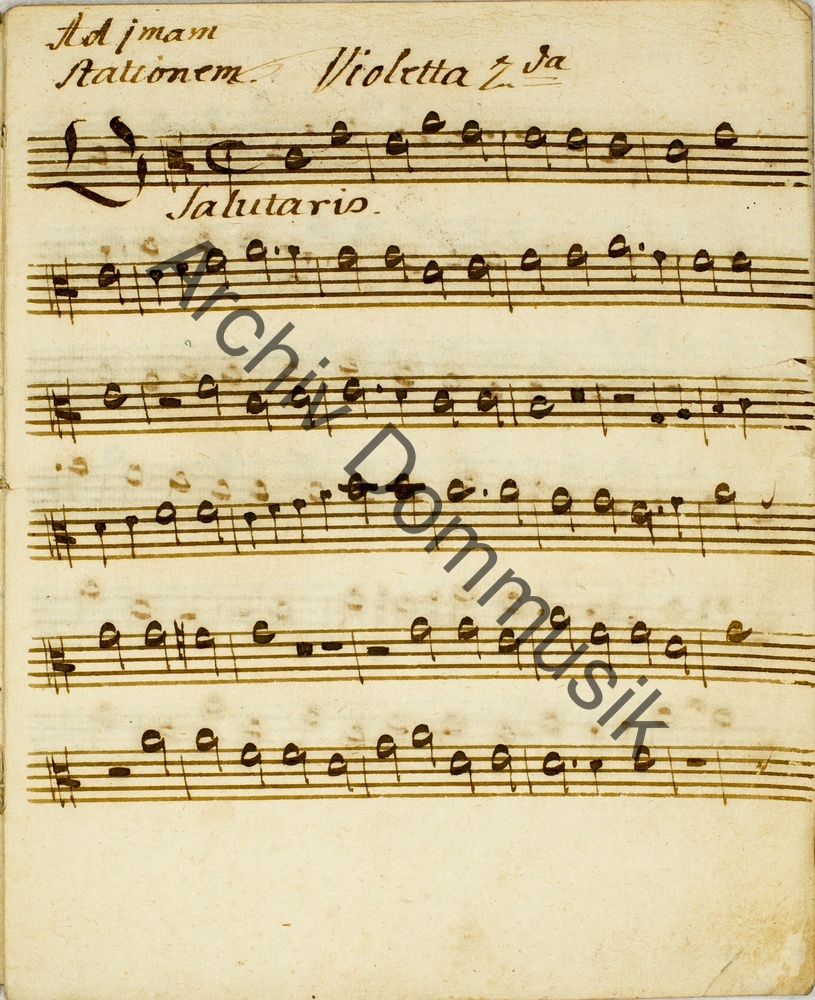 Ad jmam
Stationem. Violetta 2.da
Salutaris.
Archiv Dommusik